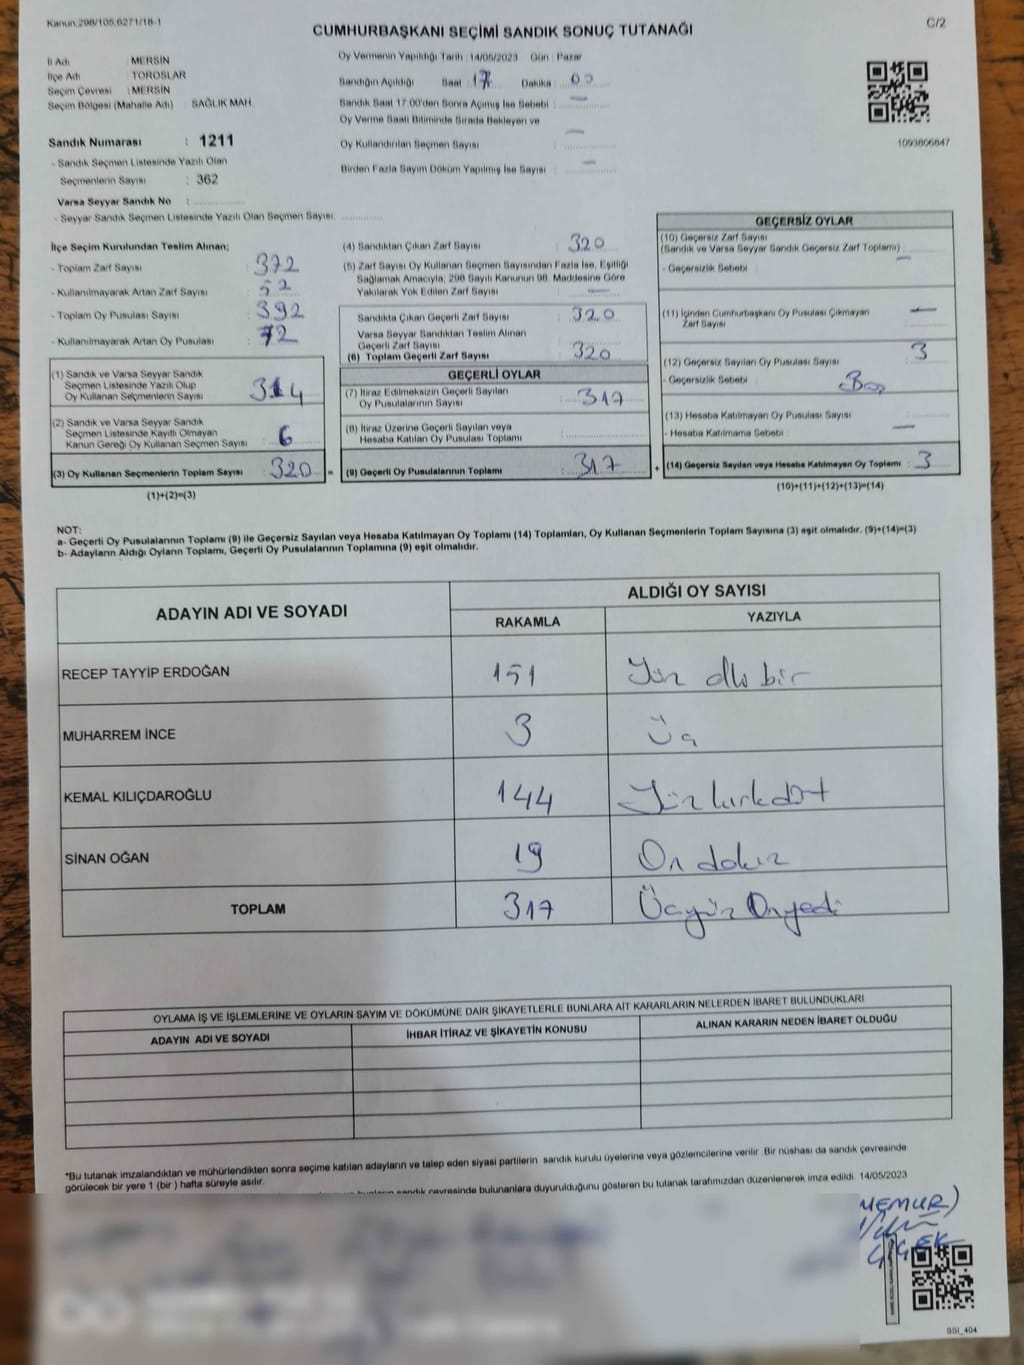 Kanun.298/105,6271/18-1
C/2
CUMHURBAŞKANI SEÇİMİ SANDIK SONUÇ TUTANAĞI
İl Adı : MERSİN
İlçe Adı : TOROSLAR
Seçim Çevresi : MERSİN
Seçim Bölgesi (Mahalle Adı) : SAĞLIK MAH.
Sandık Numarası : 1211
- Sandık Seçmen Listesinde Yazılı Olan
Seçmenlerin Sayısı : 362
Varsa Seyyar Sandık No :
- Seyyar Sandık Seçmen Listesinde Yazılı Olan Seçmen Sayısı:
Oy Vermenin Yapıldığı Tarih : 14/05/2023 Gün : Pazar
Sandığın Açıldığı Saat : 17 Dakika : 00
Sandık Saat 17.00'den Sonra Açımış İse Sebebi : —
Oy Verme Saati Bitiminde Sırada Bekleyen ve
Oy Kullandırılan Seçmen Sayısı : —
Birden Fazla Sayım Döküm Yapılmış İse Sayısı : —
1093806847
İlçe Seçim Kurulundan Teslim Alınan;
- Toplam Zarf Sayısı : 372
- Kullanılmayarak Artan Zarf Sayısı : 52
- Toplam Oy Pusulası Sayısı : 392
- Kullanılmayarak Artan Oy Pusulası : 72
(1) Sandık ve Varsa Seyyar Sandık
Seçmen Listesinde Yazılı Olup
Oy Kullanan Seçmenlerin Sayısı : 314
(2) Sandık ve Varsa Seyyar Sandık
Seçmen Listesinde Kayıtlı Olmayan
Kanun Gereği Oy Kullanan Seçmen Sayısı : 6
(3) Oy Kullanan Seçmenlerin Toplam Sayısı : 320 =
(1)+(2)=(3)
(4) Sandıktan Çıkan Zarf Sayısı : 320
(5) Zarf Sayısı Oy Kullanan Seçmen Sayısından Fazla İse, Eşitliği
Sağlamak Amacıyla; 298 Sayılı Kanunun 98. Maddesine Göre
Yakılarak Yok Edilen Zarf Sayısı : —
Sandıkta Çıkan Geçerli Zarf Sayısı : 320
Varsa Seyyar Sandıktan Teslim Alınan
Geçerli Zarf Sayısı :
(6) Toplam Geçerli Zarf Sayısı : 320
GEÇERLİ OYLAR
(7) İtiraz Edilmeksizin Geçerli Sayılan
Oy Pusulalarının Sayısı : 317
(8) İtiraz Üzerine Geçerli Sayılan veya
Hesaba Katılan Oy Pusulası Toplamı :
(9) Geçerli Oy Pusulalarının Toplamı : 317 +
GEÇERSİZ OYLAR
(10) Geçersiz Zarf Sayısı :
(Sandık ve Varsa Seyyar Sandık Geçersiz Zarf Toplamı) —
- Geçersizlik Sebebi :
(11) İçinden Cumhurbaşkanı Oy Pusulası Çıkmayan : —
Zarf Sayısı
(12) Geçersiz Sayılan Oy Pusulası Sayısı : 3
- Geçersizlik Sebebi : Boş
(13) Hesaba Katılmayan Oy Pusulası Sayısı :
- Hesaba Katılmama Sebebi : —
(14) Geçersiz Sayılan veya Hesaba Katılmayan Oy Toplamı : 3
(10)+(11)+(12)+(13)=(14)
NOT:
a- Geçerli Oy Pusulalarının Toplamı (9) ile Geçersiz Sayılan veya Hesaba Katılmayan Oy Toplamı (14) Toplamları, Oy Kullanan Seçmenlerin Toplam Sayısına (3) eşit olmalıdır. (9)+(14)=(3)
b- Adayların Aldığı Oyların Toplamı, Geçerli Oy Pusulalarının Toplamına (9) eşit olmalıdır.
ADAYIN ADI VE SOYADI
ALDIĞI OY SAYISI
RAKAMLA YAZIYLA
RECEP TAYYİP ERDOĞAN 151 Yüz elli bir
MUHARREM İNCE 3 Üç
KEMAL KILIÇDAROĞLU 144 Yüz kırk dört
SİNAN OĞAN 19 On dokuz
TOPLAM 317 Üçyüz Onyedi
OYLAMA İŞ VE İŞLEMLERİNE VE OYLARIN SAYIM VE DÖKÜMÜNE DAİR ŞİKAYETLERLE BUNLARA AİT KARARLARIN NELERDEN İBARET BULUNDUKLARI
ADAYIN ADI VE SOYADI İHBAR İTİRAZ VE ŞİKAYETİN KONUSU ALINAN KARARIN NEDEN İBARET OLDUĞU
*Bu tutanak imzalandıktan ve mühürlendikten sonra seçime katılan adayların ve talep eden siyasi partilerin sandık kurulu üyelerine veya gözlemcilerine verilir. Bir nüshası da sandık çevresinde
görülecek bir yere 1 (bir ) hafta süreyle asılır.
sandık çevresinde bulunanlara duyurulduğunu gösteren bu tutanak tarafımızdan düzenlenerek imza edildi. 14/05/2023
MEMUR)
SSI_404